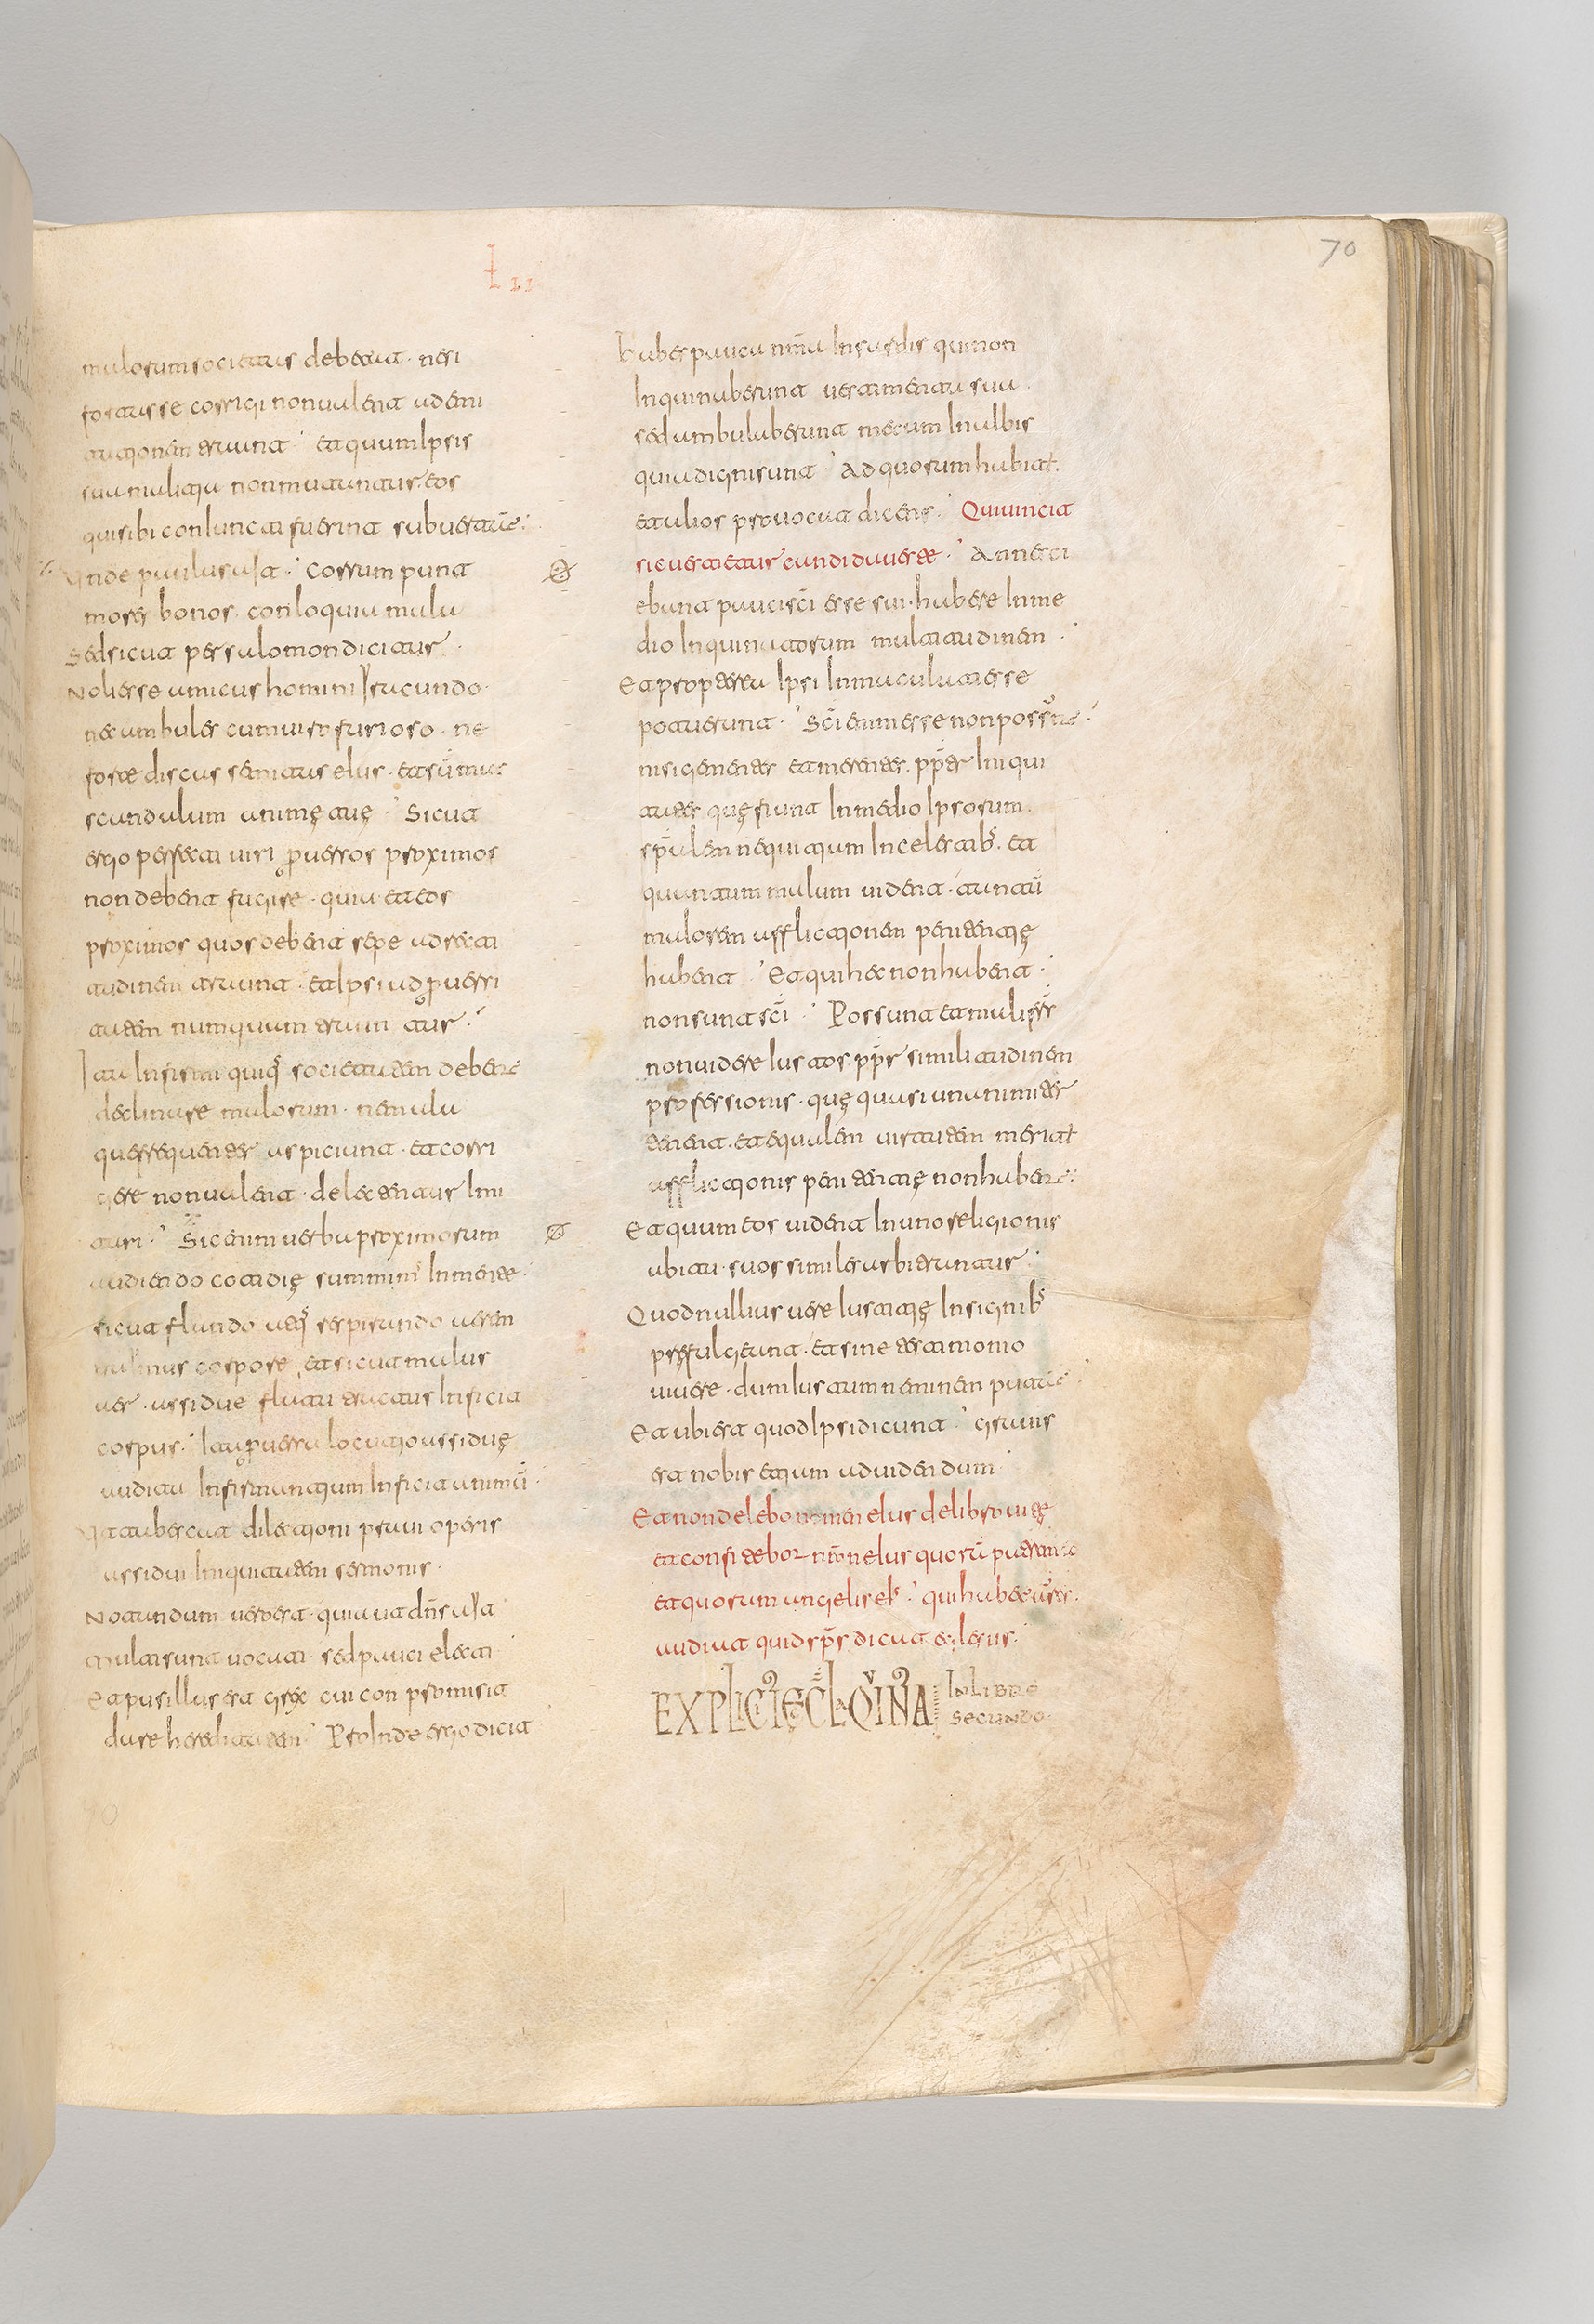 Lii
70
malorum societatis debeat. nesi
fortasse corrigi non ualent ad emi
tationem trauunt. et quum Ipsis
sua malitia non mutantur. eos
qui sibi coniuncti fuerint subuertant.
Unde paulus ait. Corrumpunt
mores bonos. conloquia mala
Sed sicut per salomon dicitur.
Noli esse amicus homini iracundo.
nec ambules cum uiro furioso. ne
forte discas semitas eius. et sumas
scandalum animę tuę. Sicut
ergo perfecti uiri puersos proximos
non debent fugire. quia et eos
proximos quos debent sepe ad recti
tudinem traunt. et Ipsi ad puersi
tatem numquam traun tur.
Ita Infirmi quiq societatem debent
declinare malorum. ne mala
que frequenter aspiciunt. et corri
gere non ualent. delectentur Imi
tari. Sic enim uerba proximorum
audiendo cotidię summim In mente.
sicut flando atq respirando aerem
corpore. et sicut malus
aer. assidue flatu tractus Inficit
corpus. Ita puersa locutio assiduę
audita Infirmantium Inficit animū.
Ut tabescat dilectioni praui operis
assidui Iniquitatem sermonis.
Notandum uero est. quia ut dns ait
Multi sunt uocati. sed pauci electi
Et pusillus est grex cui con promisit
dare hereditatem. ProInde ergo dicit
habes pauca nmna In sardis qui non
Inquinaberunt uestimenta sua.
sed ambulaberunt mecum In albis
quia digni sunt. Ad quorum habiat.
et alios prouocat dicens. Qui uincit
sic uestietur candida ueste. An nesci
ebant paucis sci esse sui. habere In me
dio Inquinatorum multitudinem.
Et propterea Ipsi Inmaculati esse
potuerunt. Sci enim esse non possunt.
nisi gementes et merentes. ppter Iniqui
tates quę fiunt In medio Ipsorum.
spalem nequitium In celestibs. et
quantum malum uident. tantū
maiorem afflictionem penitentię
habent. Et qui hec non habent.
non sunt sci. Possunt et mulipsr
non uidere Iustos. ppr similitudinem
professionis. quę quasi unanimiter
tenent. et equalem uirtutem merit
afflictionis penitentię non habent.
Et quum eos uident In uno religionis
abitu. suos similes arbitrantur.
Quod nullius uere Iustitię Insignibs
pręfulgeunt. et sine testimonio
uiuere. dum Iustum neminem putant.
Et ubi est quod Ipsi dicunt. Grauis
est nobis etium ad uidendum
Et non delebo nomen eius de libro uitę
et confitebor nmn eius quorū patrem
et quorum angelis eIs. qui habet aures.
audiat quid sps dicat eclesiis.
EXPLICIT ECLA QUINTA In LIBRO
SECUNDO.